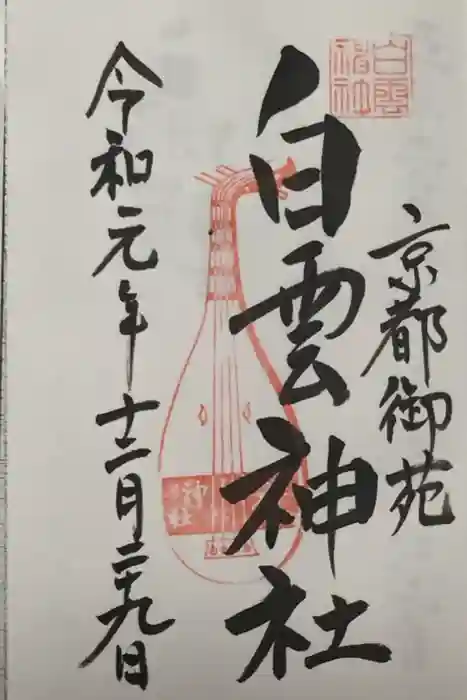 京都御苑
白雲神社
令和元年十二月二十九日
白雲
神社